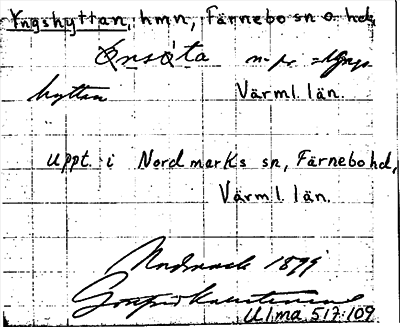 Yngshyttan, hmn, Färnebo sn o. hd,
Önsôta n. pr. = Yngs-
hyttan Värml. län.
Uppt. i Nordmarks sn, Färnebo hd,
Värml. län.
Nordmark 1899
Ulma 517:109